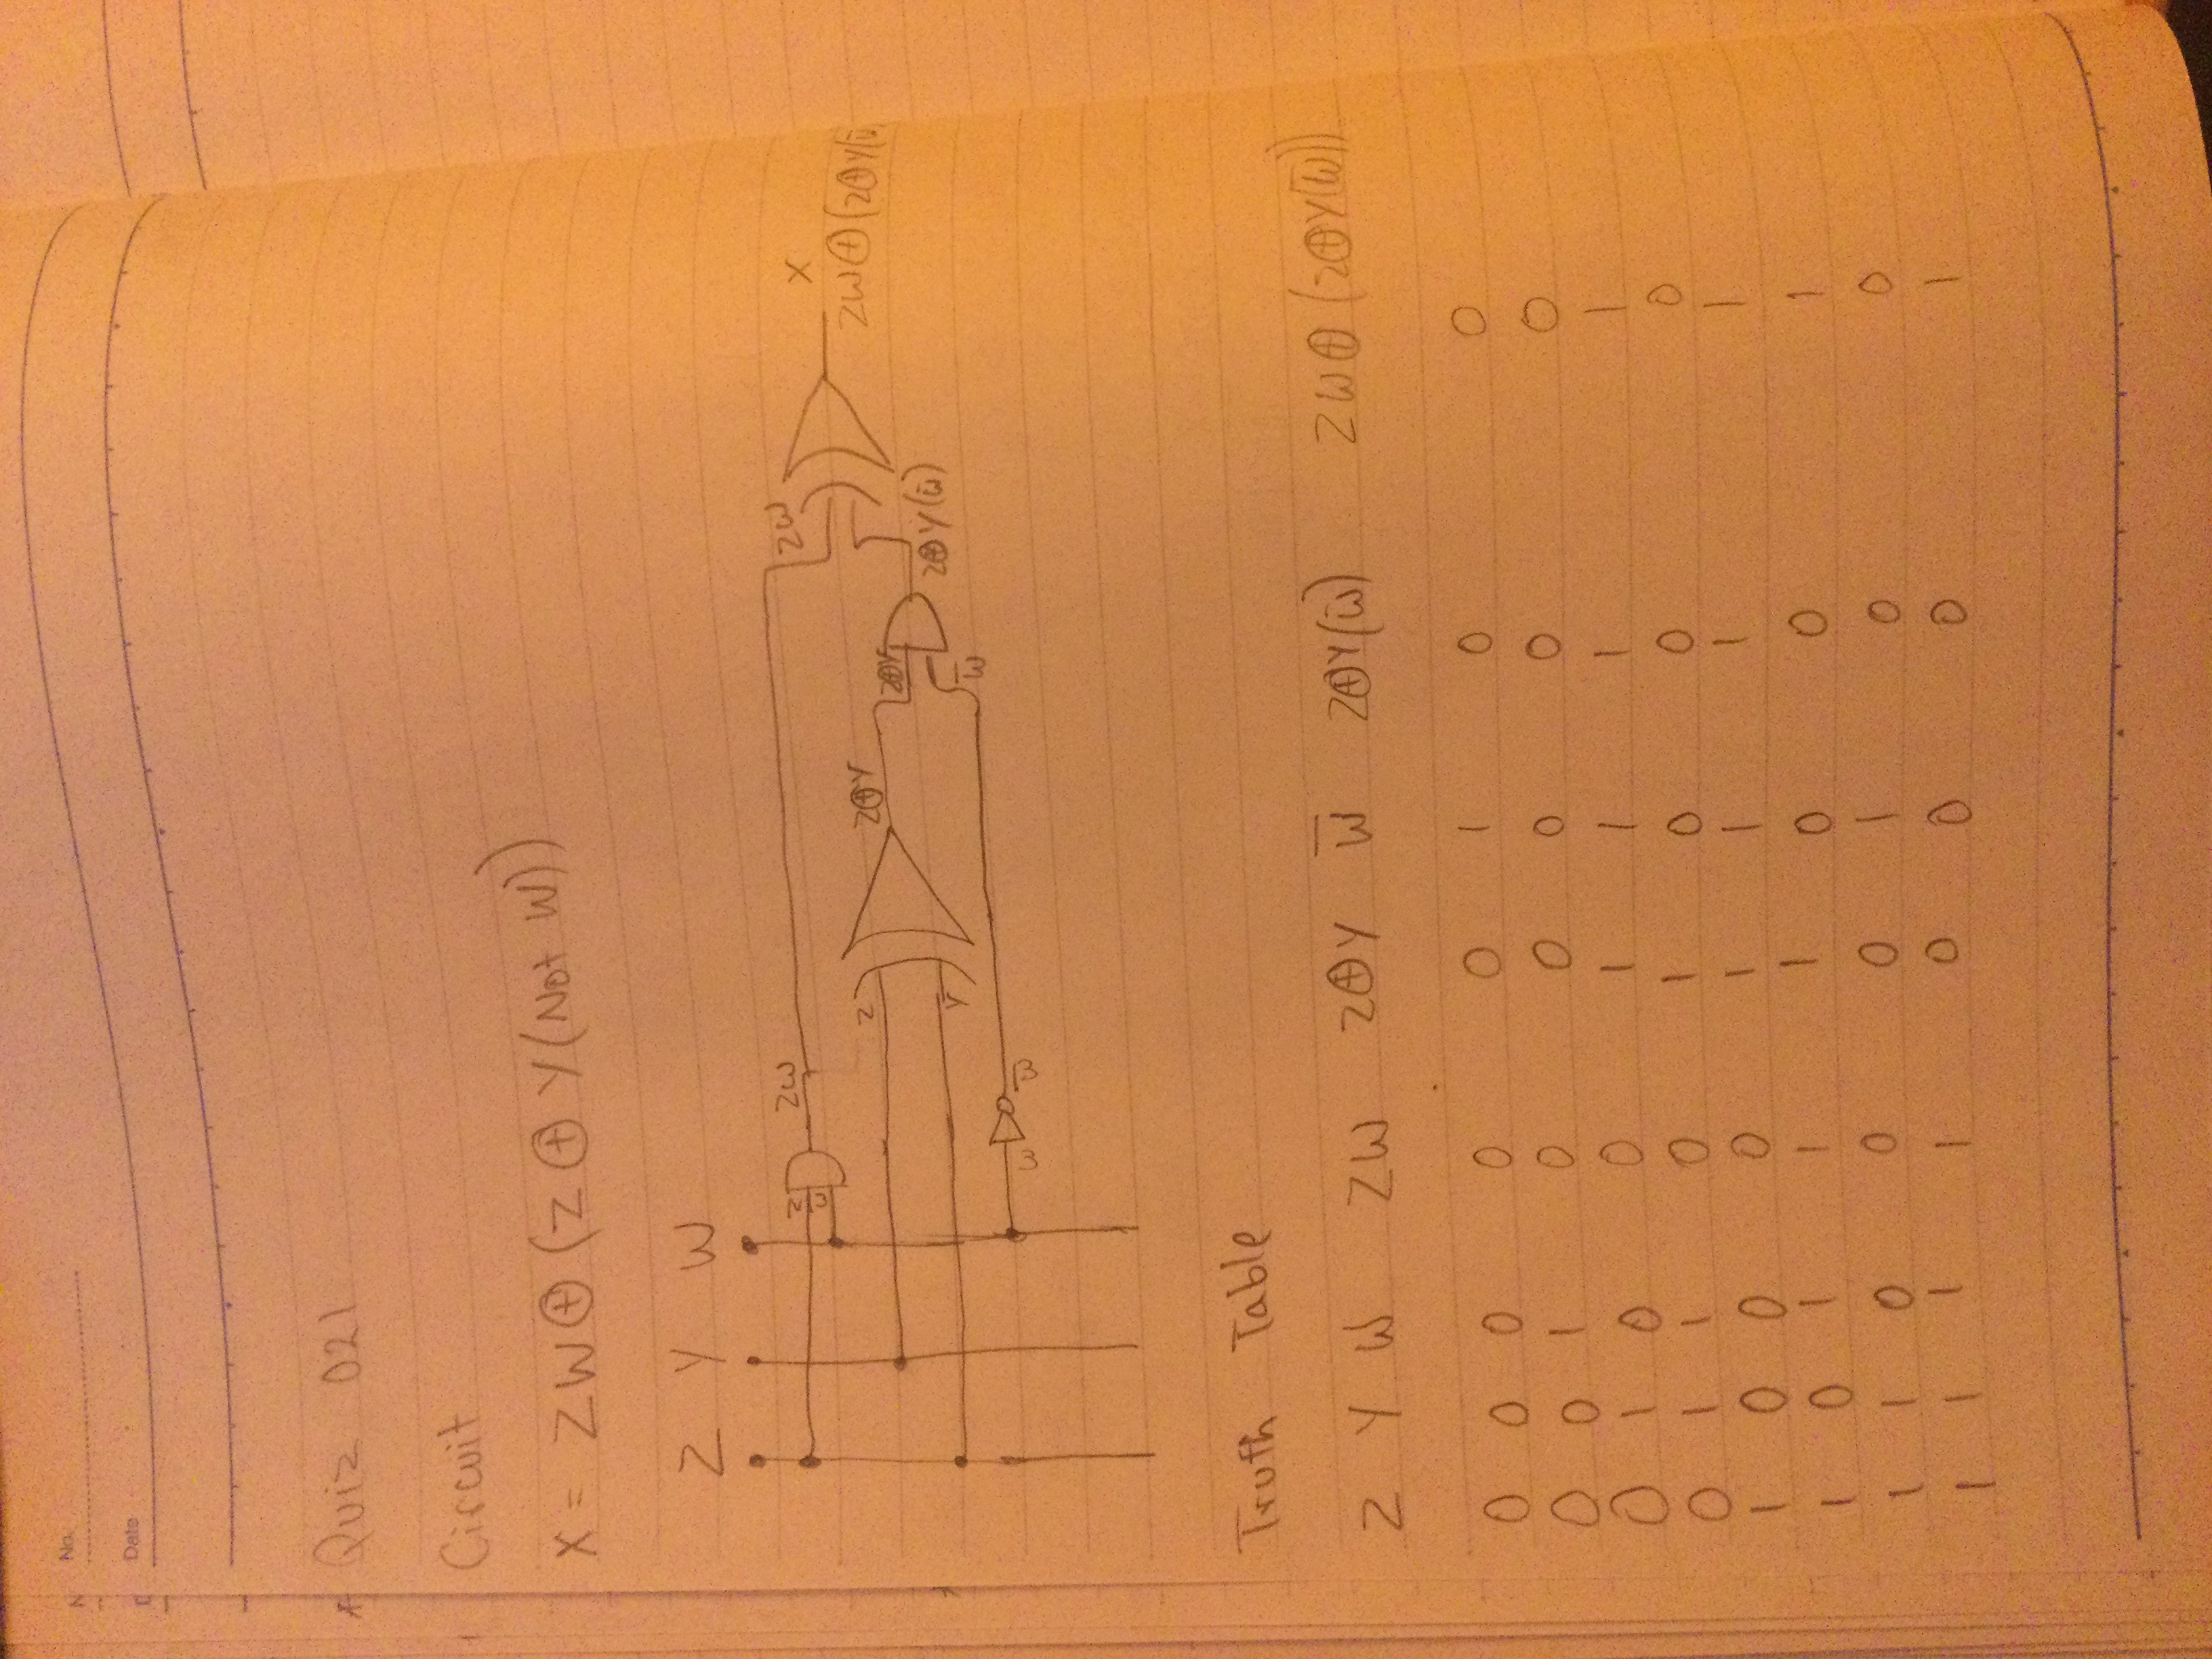 No.
Date
Quiz 021
Circuit
X = ZW⊕(Z ⊕ Y(Not W))
Z Y W
Z
W
ZW
ZW
X
ZW⊕(Z⊕Y(W̅
Z
Z⊕Y
Z⊕Y
Y
W̅
Z⊕Y(W̅)
W
W̅
Truth Table
Z Y W ZW Z⊕Y W̅ Z⊕Y(W̅) ZW⊕(Z⊕Y(W̅))
0 0 0 0 0 1 0 0
0 0 1 0 0 0 0 0
0 1 0 0 1 1 1 1
0 1 1 0 1 0 0 0
1 0 0 0 1 1 1 1
1 0 1 1 1 0 0 1
1 1 0 0 0 1 0 0
1 1 1 1 0 0 0 1